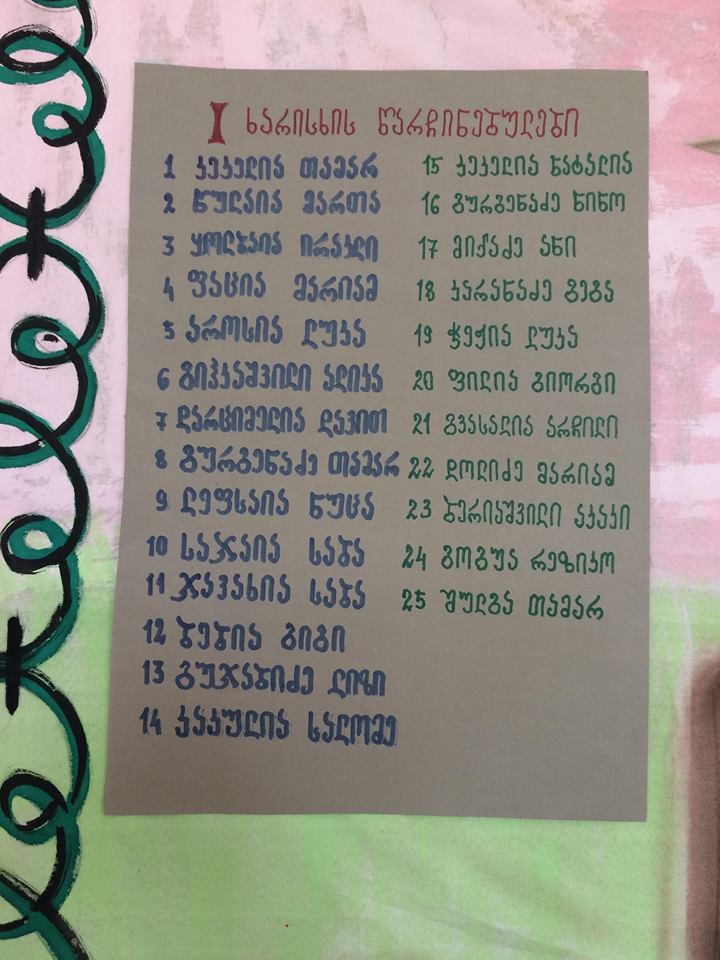 I ხარისხის წარჩინებულები
1 კეკელია თამარ
2 წულაია მართა
3 ყოლბაია ირაკლი
4 ფაცია მარიამ
5 აროსია ლუკა
6 გიჰკაშვილი ალიკა
7 დარციმელია დავით
8 გურგენაძე თამარ
9 ლეფსაია ნუცა
10 საჯაია საბა
11 ჯავახია საბა
12 ბებია გიგი
13 გუჯაბიძე ლიზი
14 კაკულია სალომე
15 კეკელია ნატალია
16 გურგენაძე ნინო
17 მიქაძე ანი
18 კარანაძე გეგა
19 ჭეჟია ლუკა
20 ფილია გიორგი
21 გვასალია არჩილი
22 დოლიძე მარიამ
23 ბერიაშვილი აკაკი
24 გოგუა რეზიკო
25 შულგა თამარ